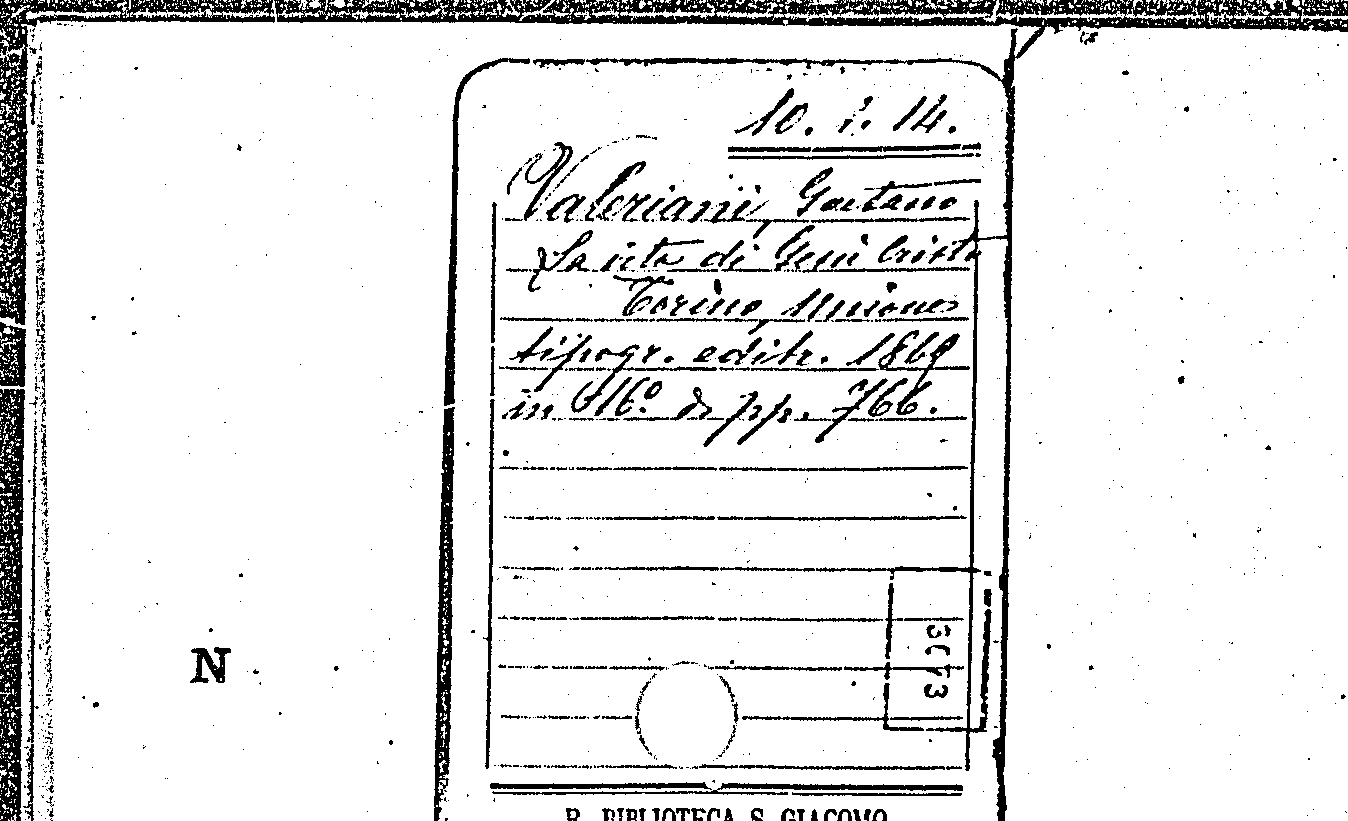 10. 2. 14.
Valeriani, Gaetano
La vita di Gesù Cristo
Torino, Unione
tipogr. editr. 1869
in 16.º di pp. 766.
N
R. BIBLIOTECA S. GIACOMO